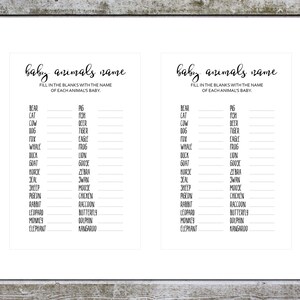 baby animals name
FILL IN THE BLANKS WITH THE NAME
OF EACH ANIMAL'S BABY.
BEAR PIG
CAT FISH
COW DEER
DOG TIGER
FOX EAGLE
WHALE FROG
DUCK LION
GOAT GOOSE
HORSE ZEBRA
SEAL SWAN
SHEEP MOOSE
PIGEON CHICKEN
RABBIT RACCOON
LEOPARD BUTTERFLY
MONKEY DOLPHIN
ELEPHANT KANGAROO
baby animals name
FILL IN THE BLANKS WITH THE NAME
OF EACH ANIMAL'S BABY.
BEAR PIG
CAT FISH
COW DEER
DOG TIGER
FOX EAGLE
WHALE FROG
DUCK LION
GOAT GOOSE
HORSE ZEBRA
SEAL SWAN
SHEEP MOOSE
PIGEON CHICKEN
RABBIT RACCOON
LEOPARD BUTTERFLY
MONKEY DOLPHIN
ELEPHANT KANGAROO